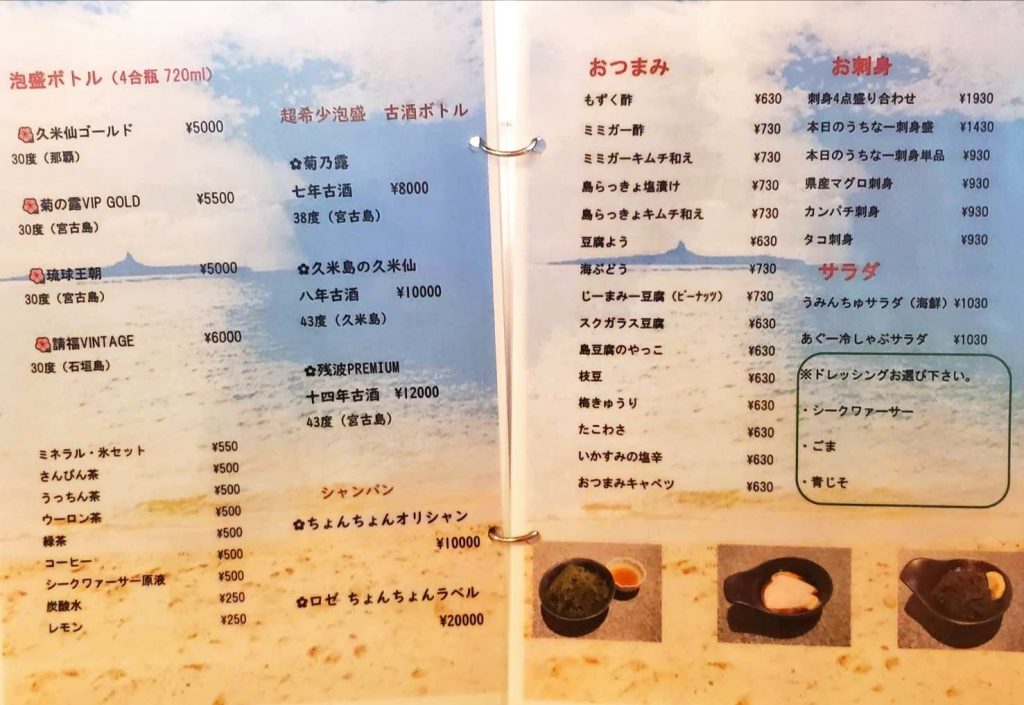 泡盛ボトル（4合瓶 720ml）
久米仙ゴールド ¥5000
30度（那覇）
菊の露VIP GOLD ¥5500
30度（宮古島）
琉球王朝 ¥5000
30度（宮古島）
請福VINTAGE ¥6000
30度（石垣島）
ミネラル・氷セット ¥550
さんぴん茶 ¥500
うっちん茶 ¥500
ウーロン茶 ¥500
緑茶 ¥500
コーヒー ¥500
シークワァーサー原液 ¥500
炭酸水 ¥250
レモン ¥250
超希少泡盛 古酒ボトル
✿菊乃露
七年古酒 ¥8000
38度（宮古島）
✿久米島の久米仙
八年古酒 ¥10000
43度（久米島）
✿残波PREMIUM
十四年古酒 ¥12000
43度（宮古島）
シャンパン
✿ちょんちょんオリシャン
¥10000
✿ロゼ ちょんちょんラベル
¥20000
おつまみ
もずく酢 ¥630
ミミガー酢 ¥730
ミミガーキムチ和え ¥730
島らっきょ塩漬け ¥730
島らっきょキムチ和え ¥730
豆腐よう ¥630
海ぶどう ¥730
じーまみー豆腐（ピーナッツ） ¥730
スクガラス豆腐 ¥630
島豆腐のやっこ ¥630
枝豆 ¥630
梅きゅうり ¥630
たこわさ ¥630
いかすみの塩辛 ¥630
おつまみキャベツ ¥630
お刺身
刺身4点盛り合わせ ¥1930
本日のうちなー刺身盛 ¥1430
本日のうちなー刺身単品 ¥930
県産マグロ刺身 ¥930
カンパチ刺身 ¥930
タコ刺身 ¥930
サラダ
うみんちゅサラダ（海鮮）¥1030
あぐー冷しゃぶサラダ ¥1030
※ドレッシングお選び下さい。
・シークワァーサー
・ごま
・青じそ